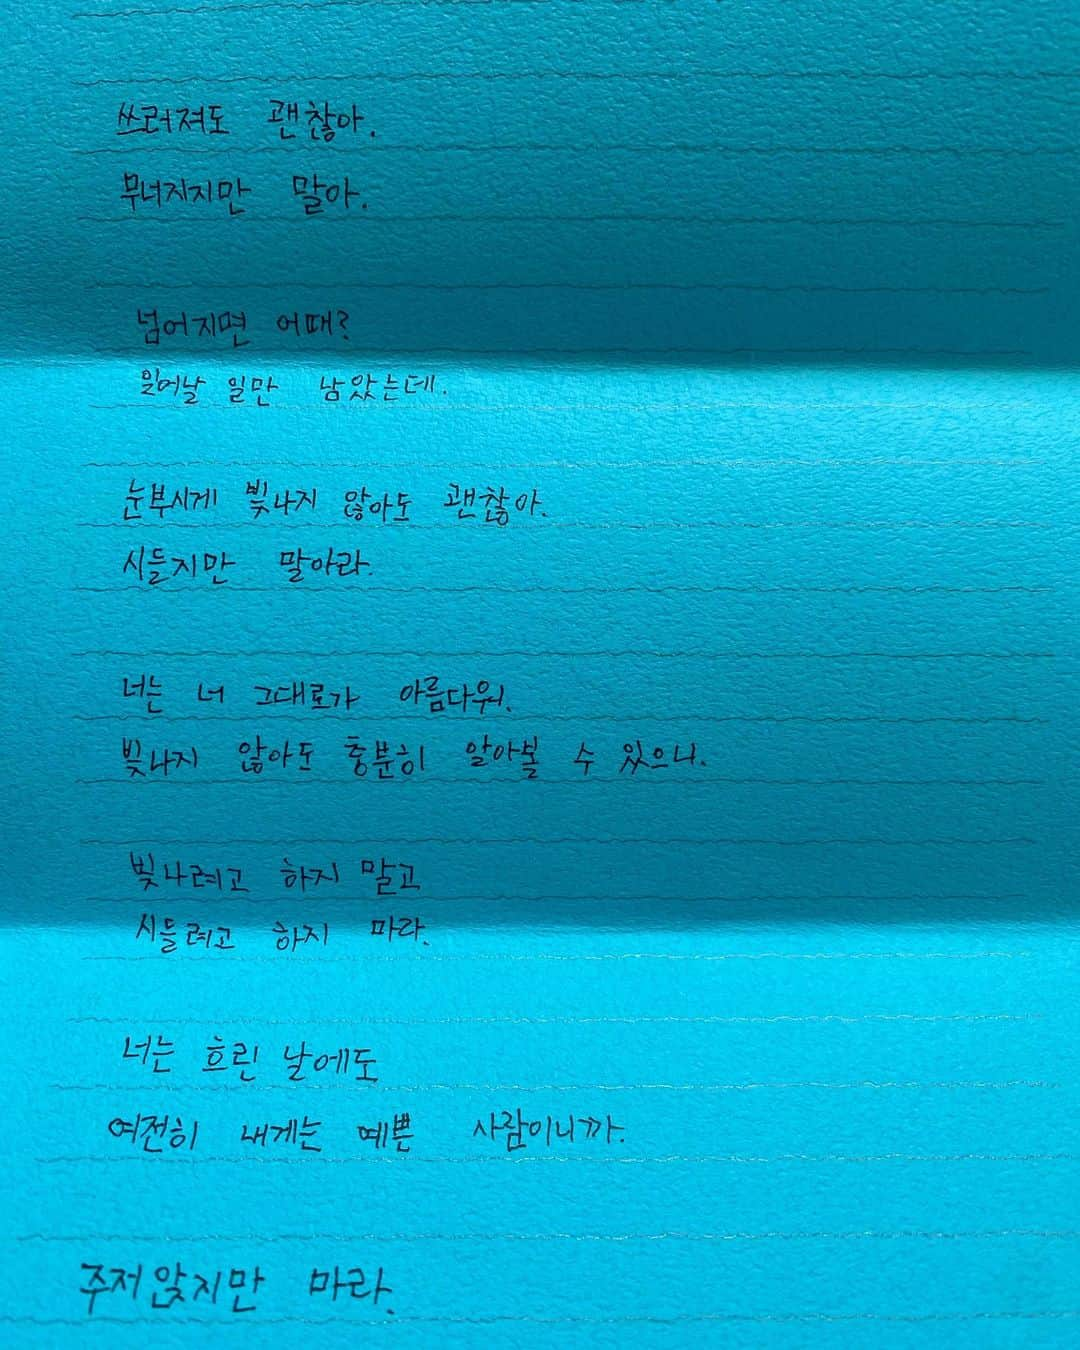 쓰러져도 괜찮아.
무너지지만 말아.
넘어지면 어때?
일어날 일만 남았는데.
눈부시게 빛나지 않아도 괜찮아.
시들지만 말아라.
너는 너 그대로가 아름다워.
빛나지 않아도 충분히 알아볼 수 있으니.
빛나려고 하지 말고
시들려고 하지 마라.
너는 흐린 날에도
여전히 내게는 예쁜 사람이니까.
주저앉지만 마라.